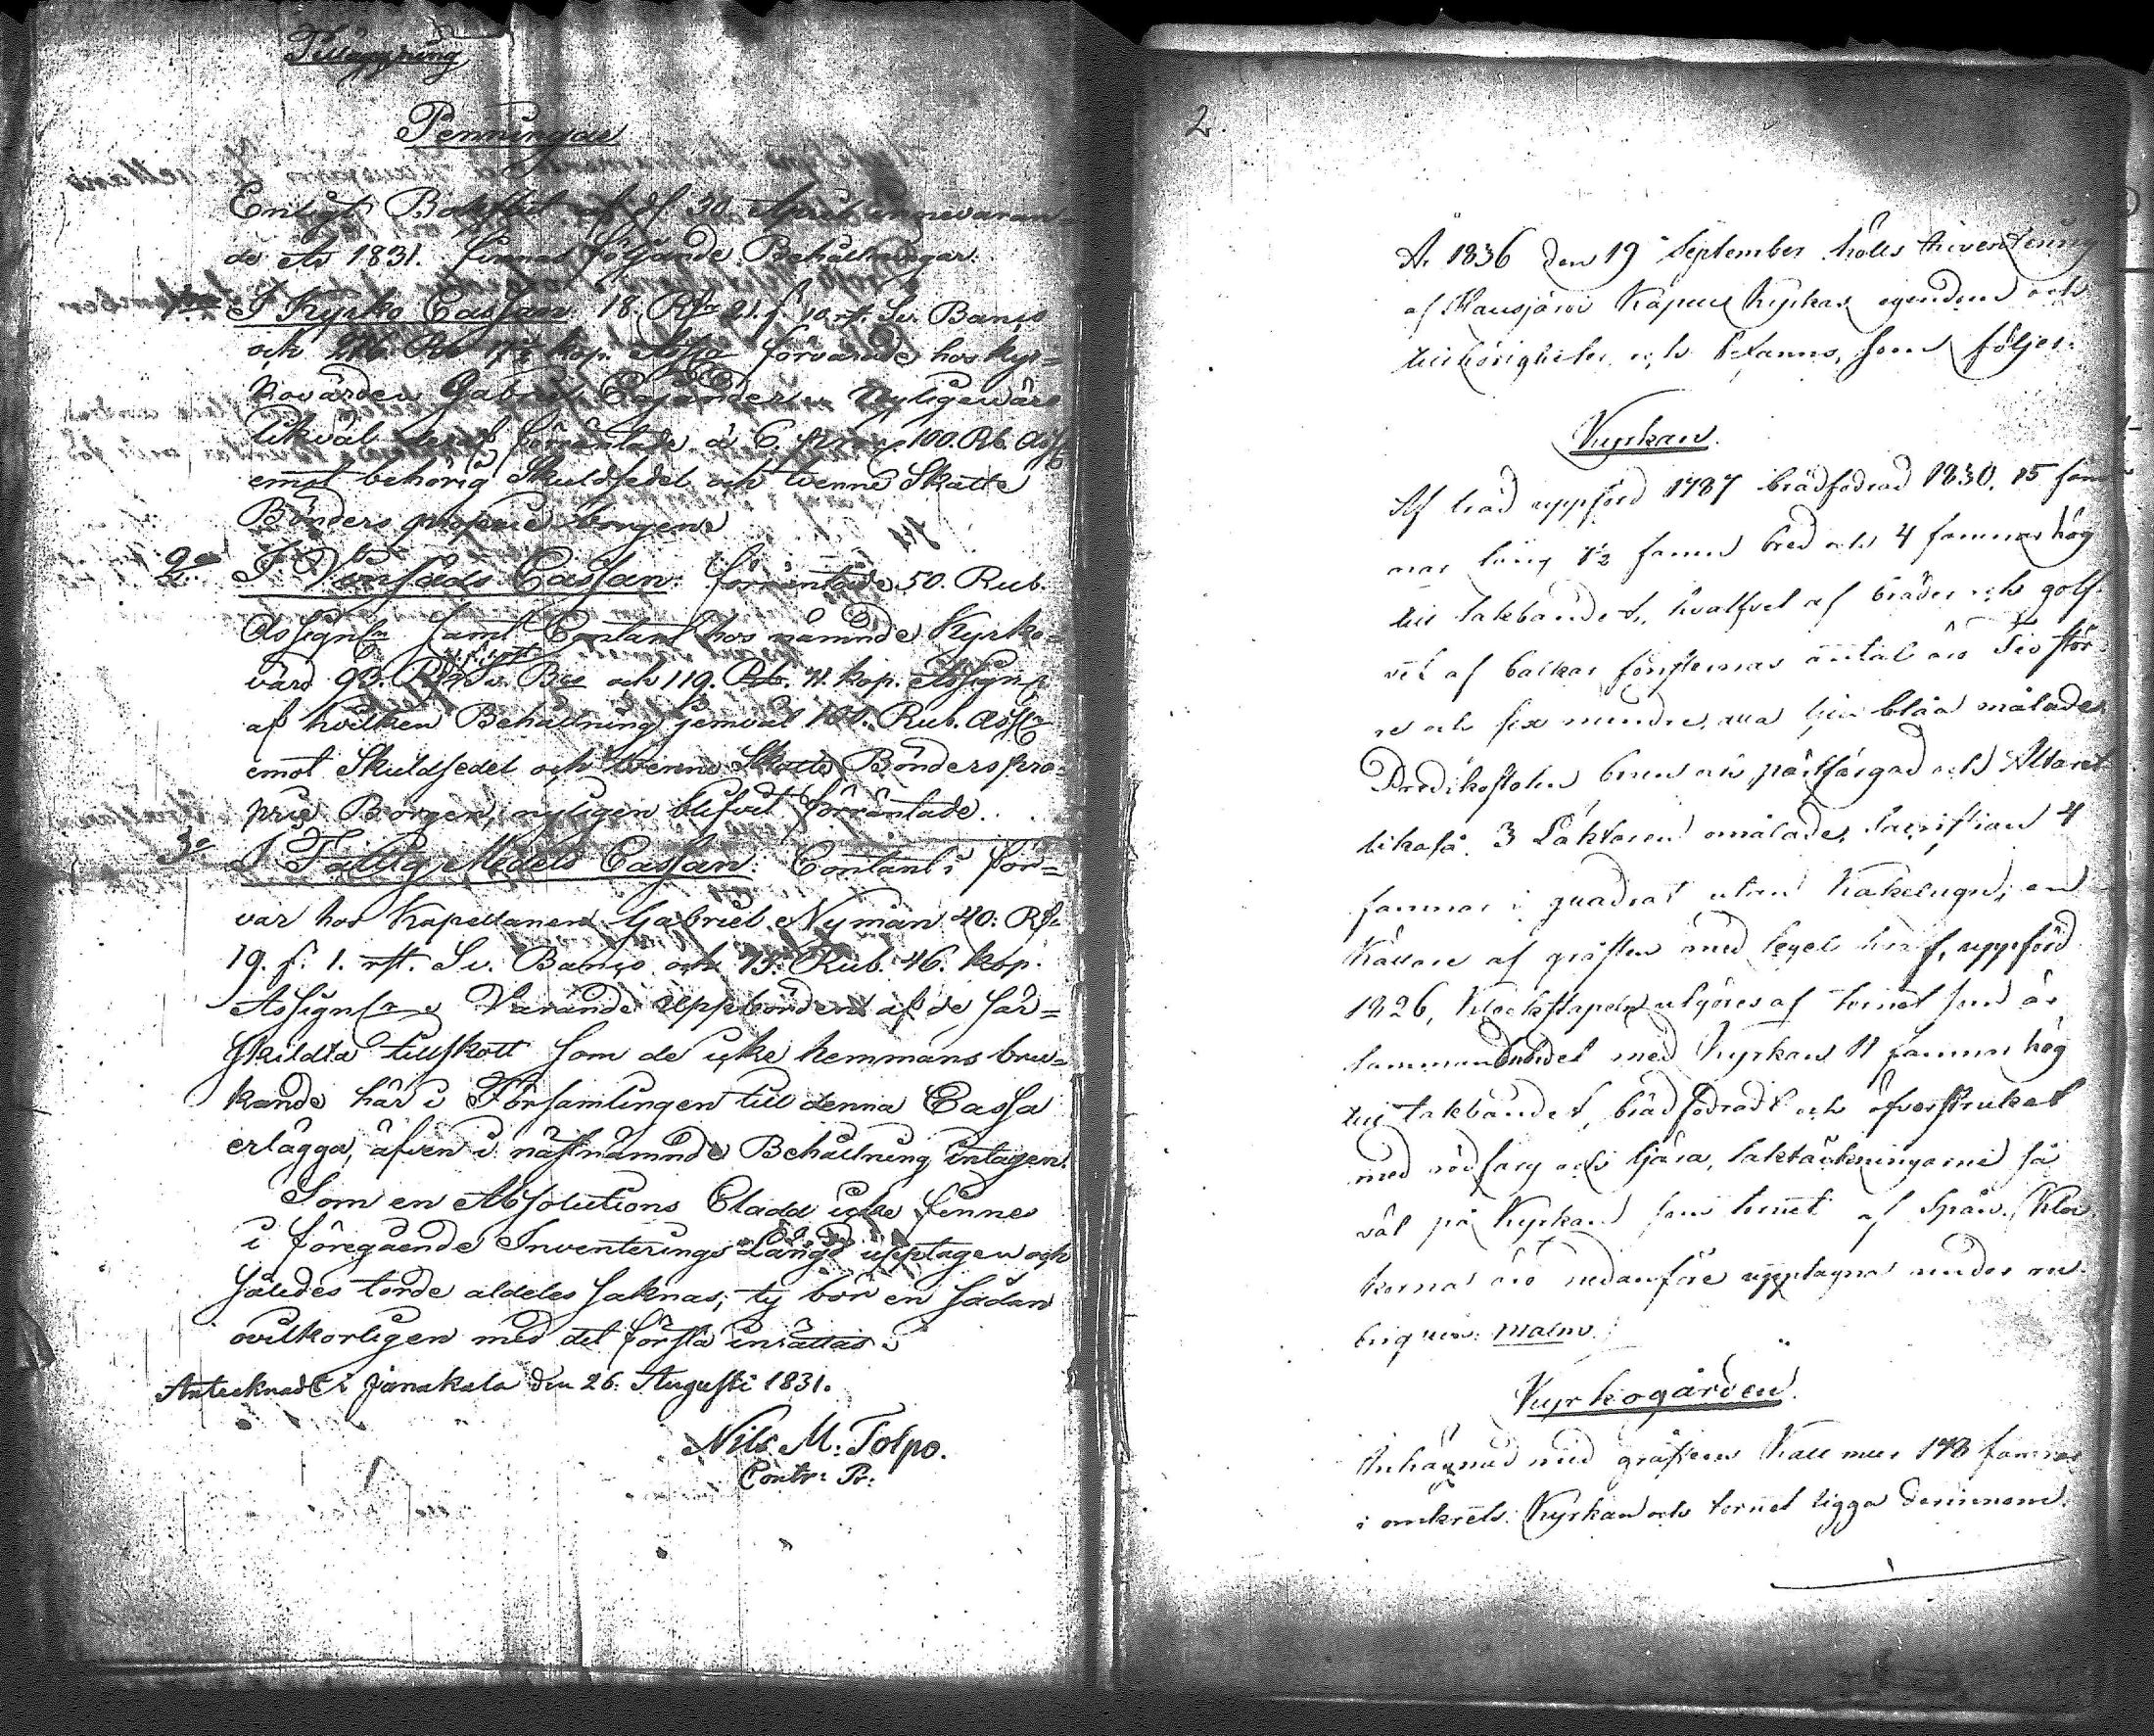 Tillägning
Penningar
Enligt Bokslut af d. 30 April innevaran-
de År 1831. finnas följande Behållningar.
1o I Kyrko Cassan 18. Rdr 21. s. 10. rst. Sv. Banco
och 276. Rub. 17½ kop. Assig. förvarade hos Kyr=
kovärden Gabriel Cajander.
likväl deraf förräntade à 6. procent 100. Rb. Assig
emot behörig Skuldsedel och tvenne Skatte
Bönders proprie borgen
2o I Cassan: förräntade 50. Rub.
Assign. samt Contant hos nämnde Kyrko-
värd 93. Rdr Sv. Bco och 119. Rub. 71. kop. Assign.
af hvilken Behållning jemväl 101. Rub. Assig
emot Skuldsedel och tvenne Skatte Bönders pro-
prie Borgen, nyligen blifvit förräntade.
3o I Fattig Medels Cassan: Contant i för=
var hos Kapellanen Gabriel Nyman 40: Rdr
19. s. 1. rst. Sv. Banco och 75. Rub. 46. kop.
Assign. Varande uppbörden af de sär=
skildta tillskott som de icke hemmans bru=
kande här i Församlingen till denna Cassa
erlägga, äfven i nästnämnde Behållning intagen.
Som en Absolutions Cladd icke finnes
i föregående Inventerings Längd upptagen och
således torde aldeles saknas; ty bör en sådan
ovilkorligen med det första inrättas.
Antecknadt i Janakala den 26. Augusti 1831.
Nils M. Tolpo.
Contr: Pr:
2.
År 1836 den 19 September hölls Inventering
af Hausjärvi Kapell Kyrkas egendom och
tillhörigheter och befanns, som följer.
Kyrkan.
Af träd uppförd 1787 brädfodrad 1830. 15 fam
nar lång 7½ famn bred och 4 famnar hög
till takbandet, hvalfvet af bräder och golf
vet af balkar fönsternas antal äro Tio stör
re och sex mindre, alla blåa målade
Predikstolen brun och pärlfärgad och Altaret
likaså. 3 Läktaren omålade, Sacristian 4
famnar i quadrat utan Kakelugn, en
Källare af gråsten med tegel hvalf, uppförd
1826, Klockstapeln utgöres af tornet som är
sammanbundet med Kyrkan 11 famnar hög
till takbandet, brädfodradt och öfverstruket
med rödfärg och tjära, taktäckningarne så
väl på Kyrkan som tornet af Spån. Kloc
korna äro nedanföre upptagna under ru-
briquen: malm.
Kyrkogården.
Inhägnad med gråstens Kall mur 178 famnar
i omkrets. Kyrkan och tornet ligga derinnom.